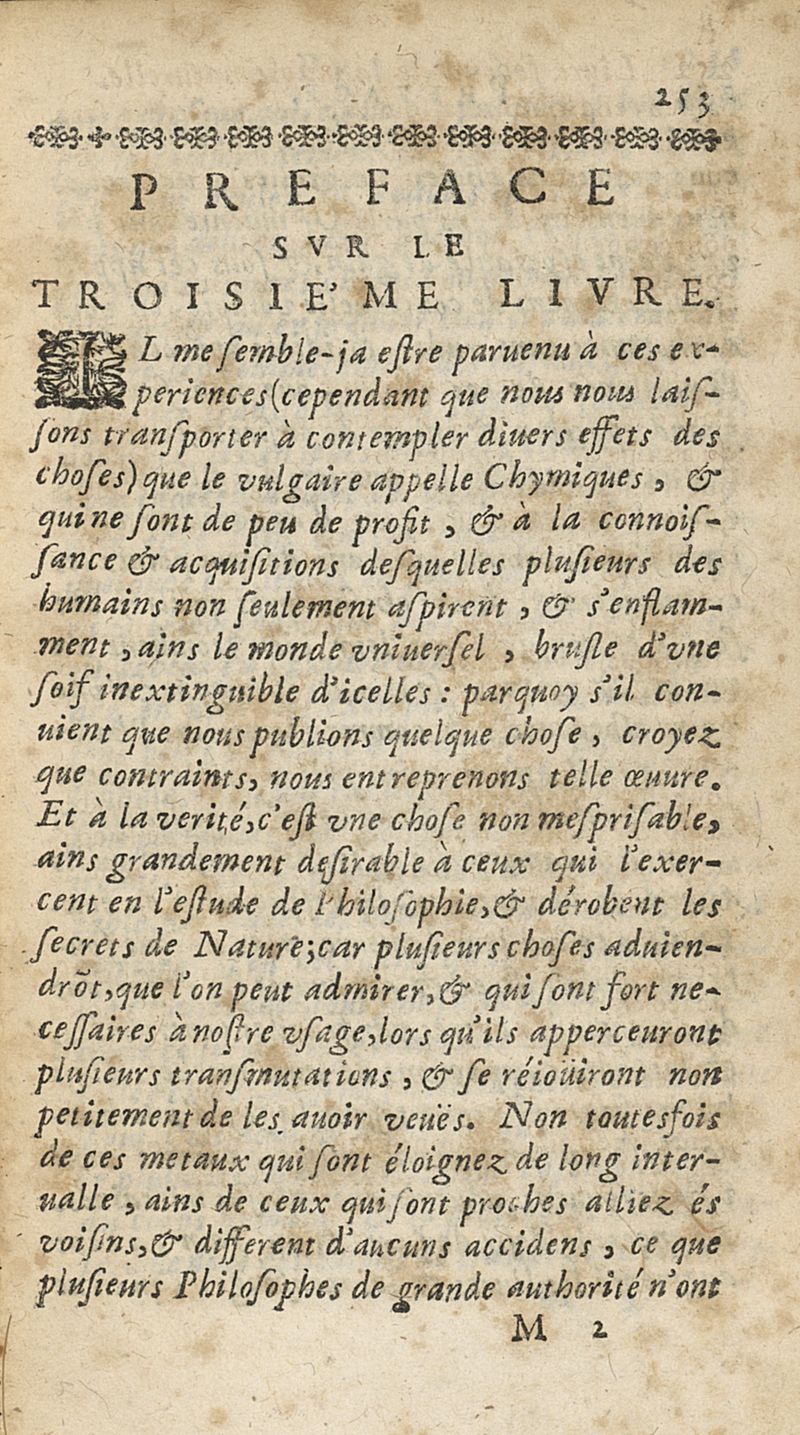 253
PREFACE
SVR LE
TROISIE'ME LIVRE.
IL me semble-ja estre paruenu à ces ex-
periences (cependant que nous nous lais-
sons transporter à contempler diuers effets des
choses) que le vulgaire appelle Chymiques, &
qui ne sont de peu de profit, & à la connois-
sance & acquisitions desquelles plusieurs des
humains non seulement aspirent, & s'enflam-
ment, ains le monde vniuersel, brusle d'vne
soif inextinguible d'icelles : parquoy s'il con-
uient que nous publions quelque chose, croyez
que contraints, nous entreprenons telle œuure.
Et à la verité, c'est vne chose non mesprisable,
ains grandement desirable à ceux qui l'exer-
cent en l'estude de Philosophie, & dérobent les
secrets de Nature; car plusieurs choses aduien-
drõt, que l'on peut admirer, & qui sont fort ne-
cessaires à nostre vsage, lors qu'ils apperceuront
plusieurs transmutations, & se réioüiront non
petitement de les auoir veuës. Non toutesfois
de ces metaux qui sont éloignez de long inter-
ualle, ains de ceux qui sont proches alliez és
voisins, & different d'aucuns accidens, ce que
plusieurs Philosophes de grande authorité n'ont
M 2